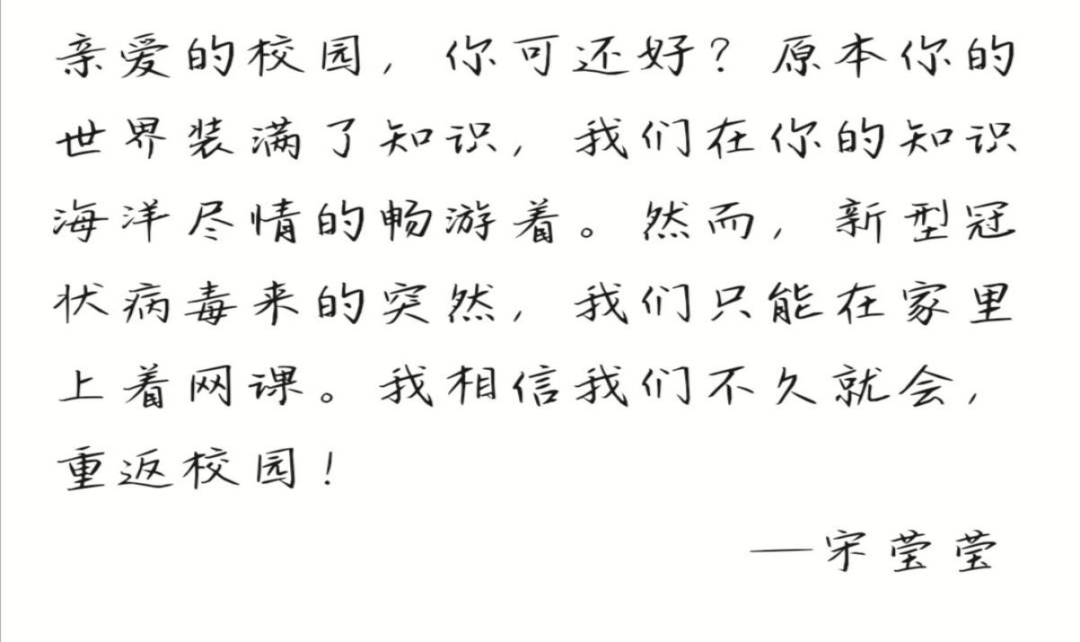 亲爱的校园，你可还好？原本你的
世界装满了知识，我们在你的知识
海洋尽情的畅游着。然而，新型冠
状病毒来的突然，我们只能在家里
上着网课。我相信我们不久就会，
重返校园！
—宋莹莹